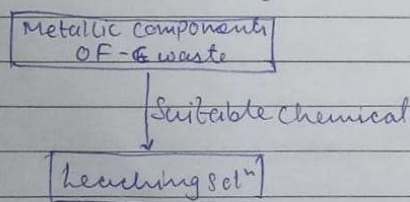 Metallic components
OF-E waste
Suitable chemical
Leaching solⁿ